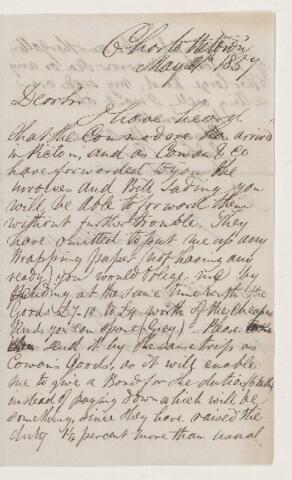 Charlottetown
May 1857
Dear Sir
I have heard
that the Commodore has arrived
in Pictou, and as Cowan & Co
have forwarded to you the
Invoice and Bill Lading, you
will be able to forward them
without further trouble. They
have omitted to put me up any
Wrapping paper, not having any
ready, you would oblige me by
sending at the same time with the
Goods £ worth of the Cheapest
kinds you can spare (Grey). Please
send it by the same trip as
Cowan's Goods, as it will enable
me to give a Bond for the duties
instead of paying down which will be
something, since they have raised the
duty percent more than usual